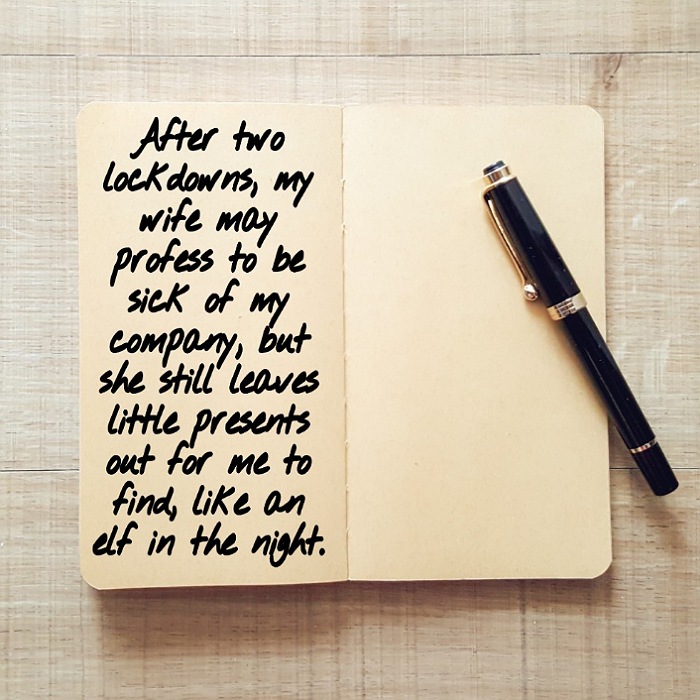 After two
lockdowns, my
wife may
profess to be
sick of my
company, but
she still leaves
little presents
out for me to
find, like an
elf in the night.